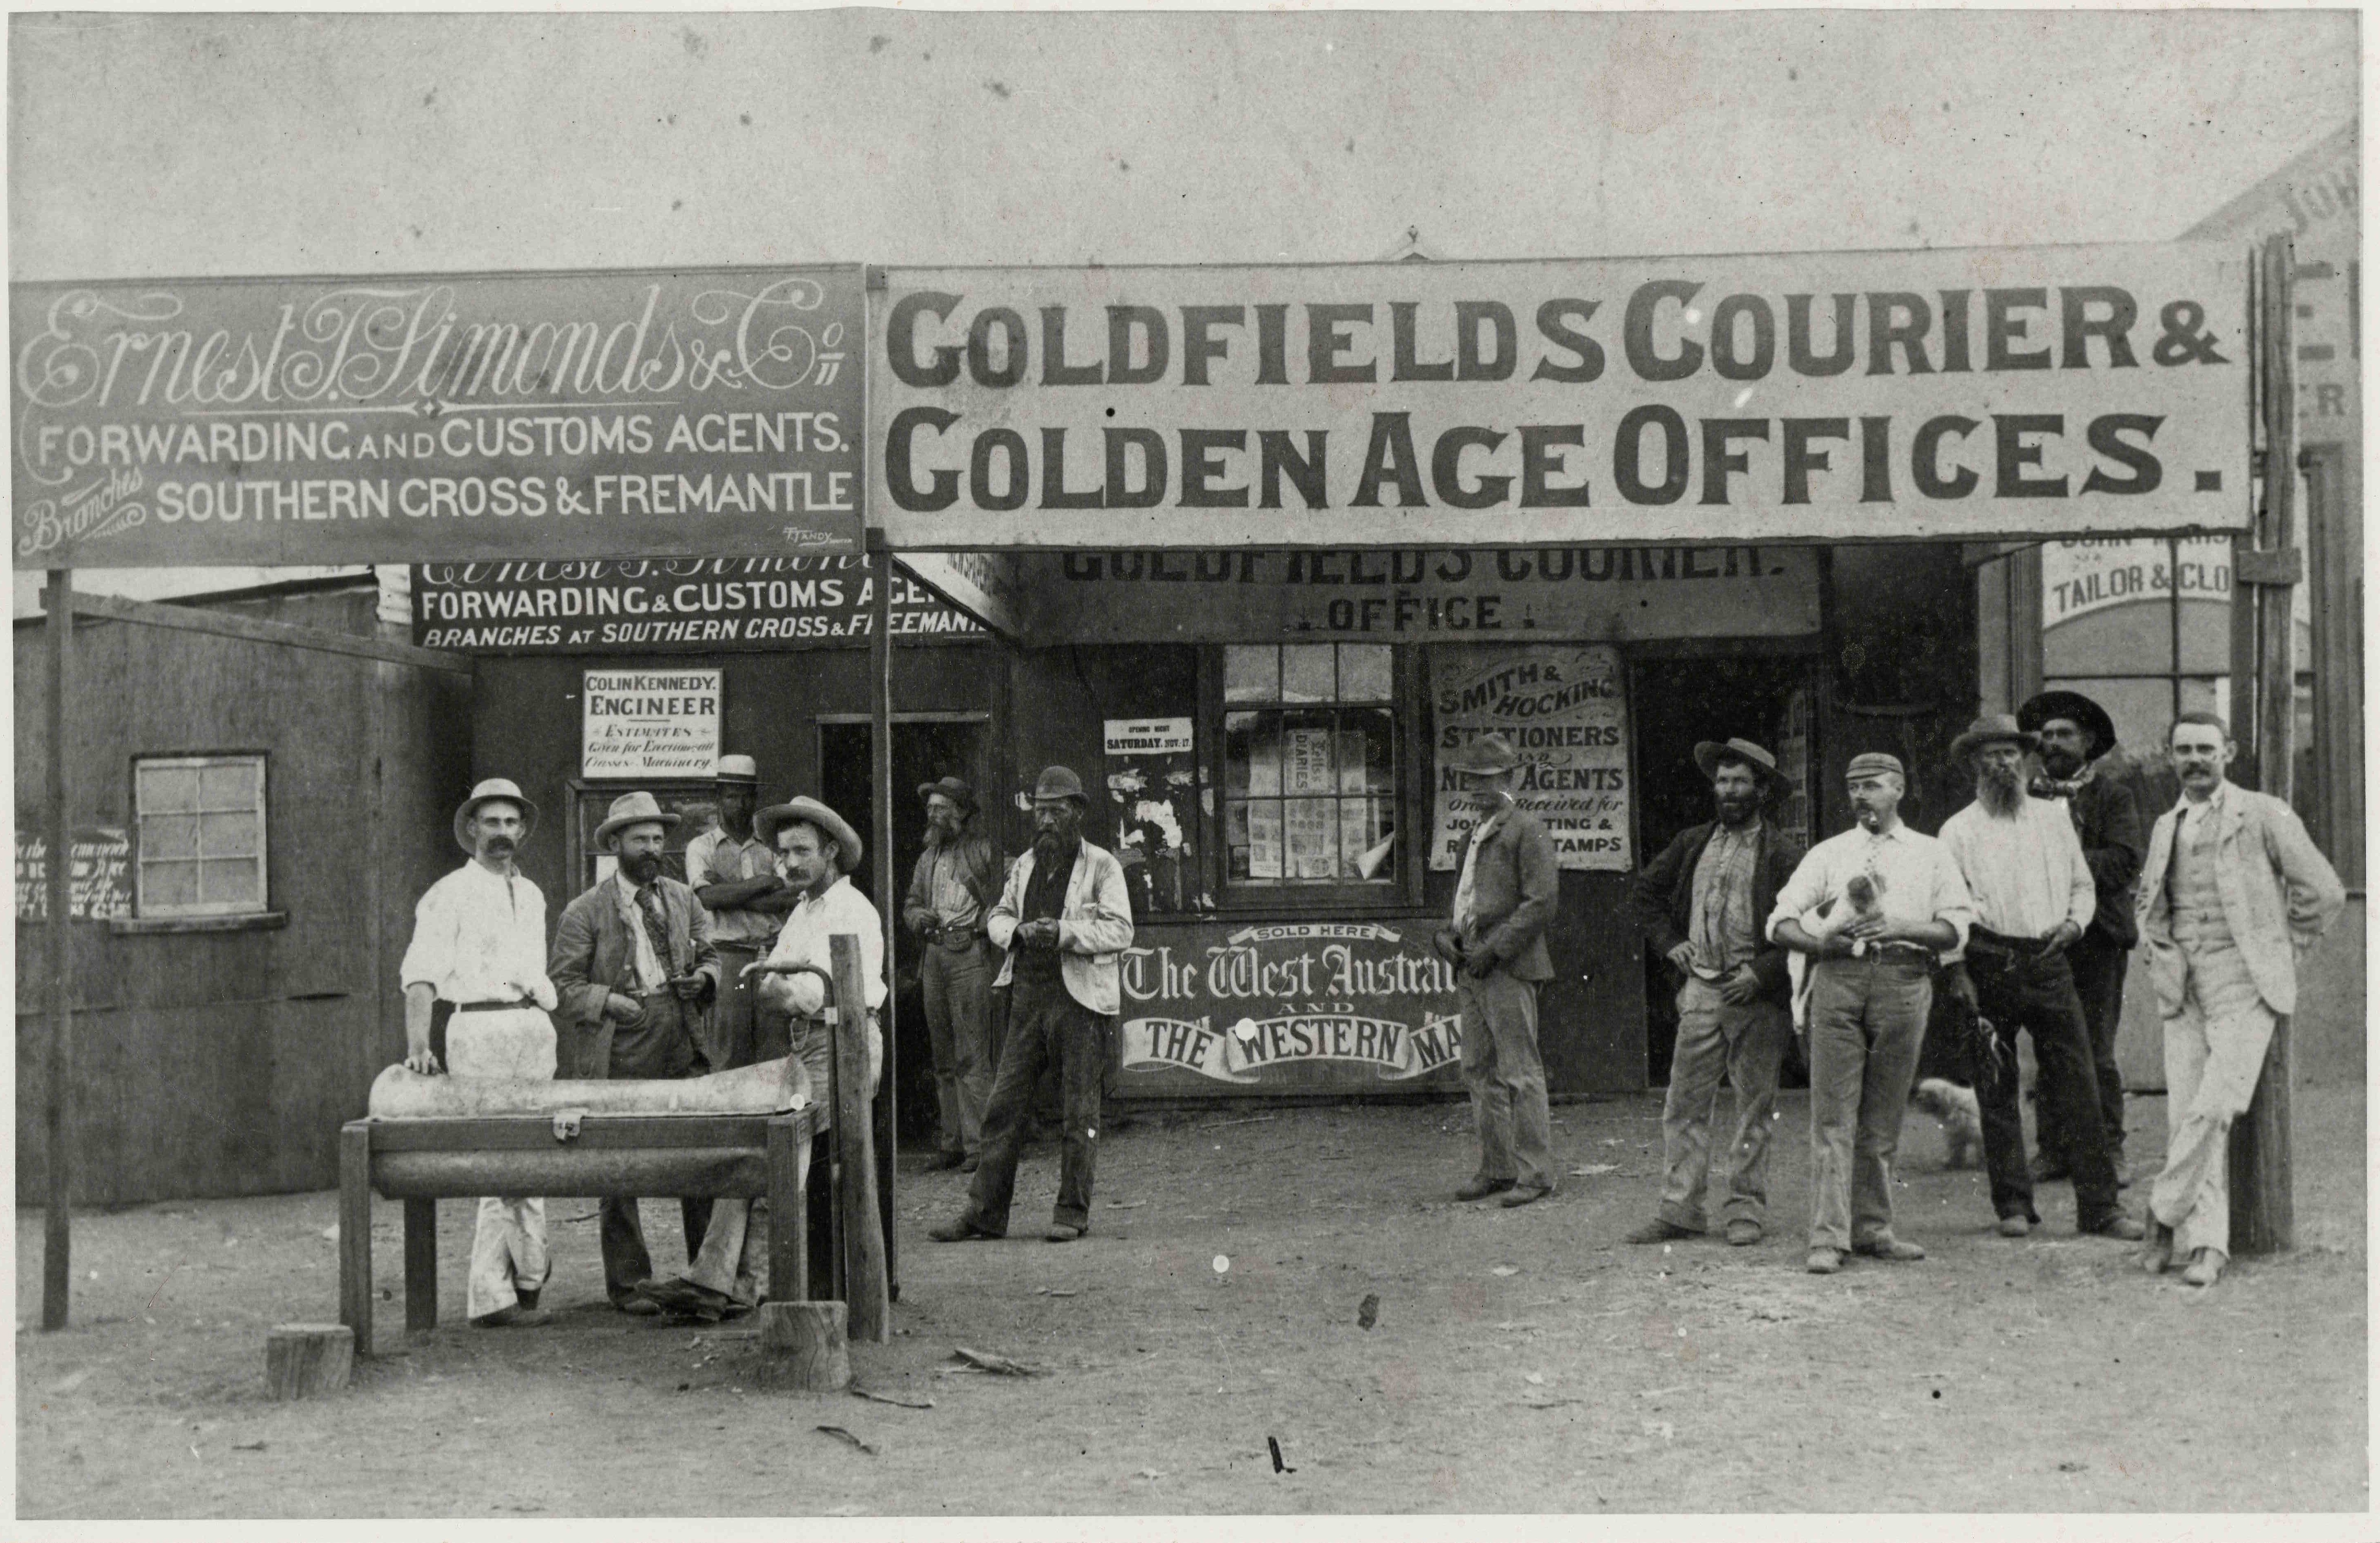 Ernest T. Simonds & Co
FORWARDING AND CUSTOMS AGENTS.
Branches SOUTHERN CROSS & FREMANTLE
F. TANDY
GOLDFIELDS COURIER &
GOLDEN AGE OFFICES.
Ernest T. Simon
FORWARDING & CUSTOMS AGEN
BRANCHES AT SOUTHERN CROSS & FREEMAN
GOLDFIELDS COURIER.
OFFICE
COLIN KENNEDY.
ENGINEER
ESTIMATES
Given for Erection all
Classes Machinery.
OPENING NIGHT
SATURDAY. NOV. 17.
DIARIES
SMITH &
HOCKING
STATIONERS
AND
NE AGENTS
Received for
JO TING &
R TAMPS
SOLD HERE
The West Austral
AND
THE WESTERN MA
JOH
ER
JOHN MARS
TAILOR & CLO